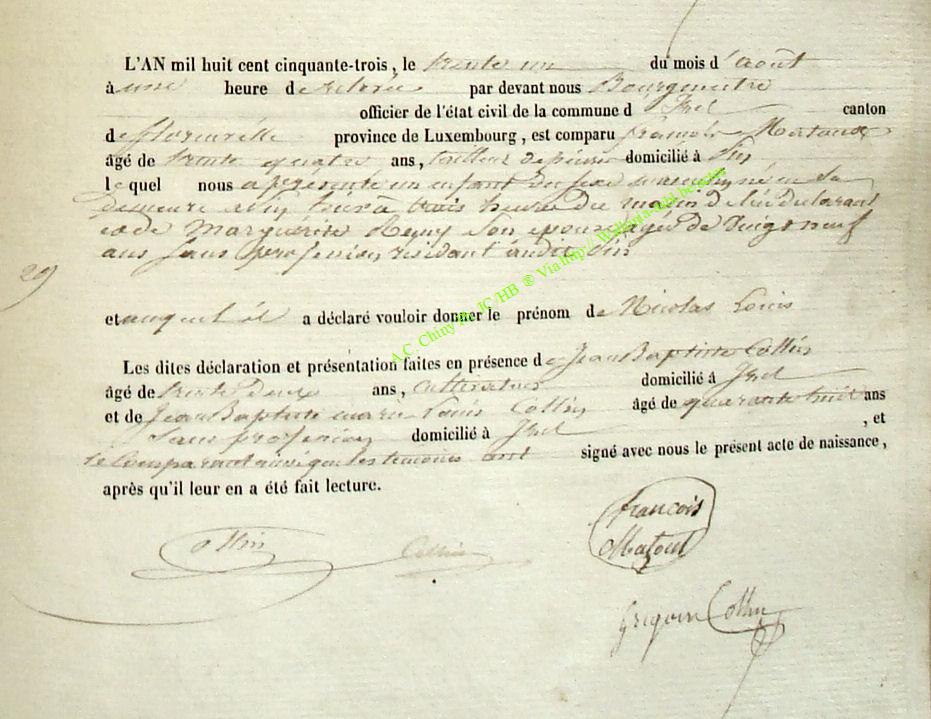 L'AN mil huit cent cinquante-trois, le trente un du mois d'août
à une heure de relevée par devant nous Bourgmestre
officier de l'état civil de la commune d'Izel canton
de florenville province de Luxembourg, est comparu
âgé de trente quatre ans, tailleur de pierre domicilié à
lequel nous a présenté un enfant du sexe masculin né en sa
demeure à trois heures du matin
de Marguerite son épouse âgée de vingt neuf
ans sans profession résidant audit
29
et auquel il a déclaré vouloir donner le prénom de Nicolas Louis
Les dites déclaration et présentation faites en présence de Jean Baptiste Collin
âgé de trente deux ans, cultivateur domicilié à Izel
et de Jean Baptiste marie Louis Collin âgé de quarante huit ans
sans profession domicilié à Izel , et
le comparant ainsi que les temoins ont signé avec nous le présent acte de naissance,
après qu'il leur en a été fait lecture.
françois
Collin Collin
Collin
A.C. Chiny JC/HB ® Via http://